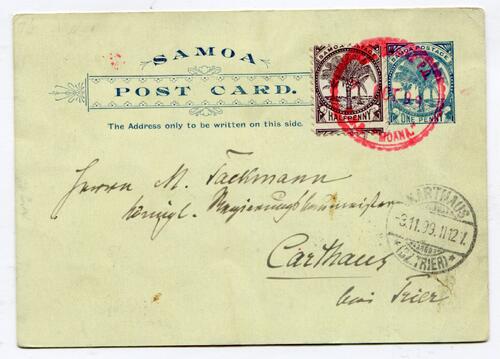 SAMOA
POST CARD.
The Address only to be written on this side.
SAMOA POSTAGE
HALFPENNY
SAMOA POSTAGE
ONE PENNY
"MOANA"
Herrn M. Tackmann
Königl. Regierungsbaumeister
Carthaus
bei Trier
KARTHAUS
3.11.99.11-12V.
*(BZ.TRIER)*